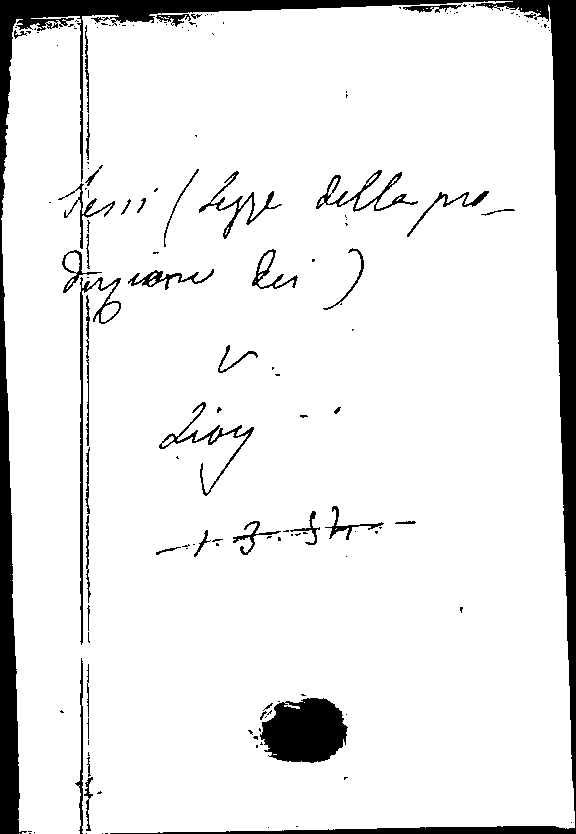 Sessi (Legge della pro-
duzione dei)
v.
Lioy
1. 3. 54.